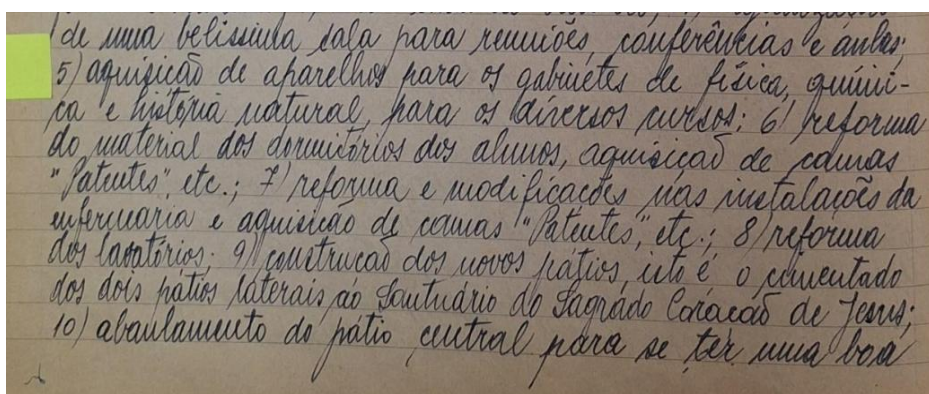 de uma belíssima sala para reuniões, conferências e aulas;
5) aquisicaõ de aparelhos para os gabinetes de física, quími-
ca e história natural, para os diversos cursos; 6) reforma
do material dos dormitórios dos alunos, aquisicaõ de camas
"Patentes", etc.; 7) reforma e modificações nas instalações da
enfermaria e aquisicão de camas "Patentes", etc.; 8) reforma
dos lavatórios; 9) construcaõ dos novos pátios, isto é, o cimentado
dos dois pátios laterais ao Santuário do Sagrado Coracaõ de Jesus;
10) abaulamento do pátio central para se ter uma boa